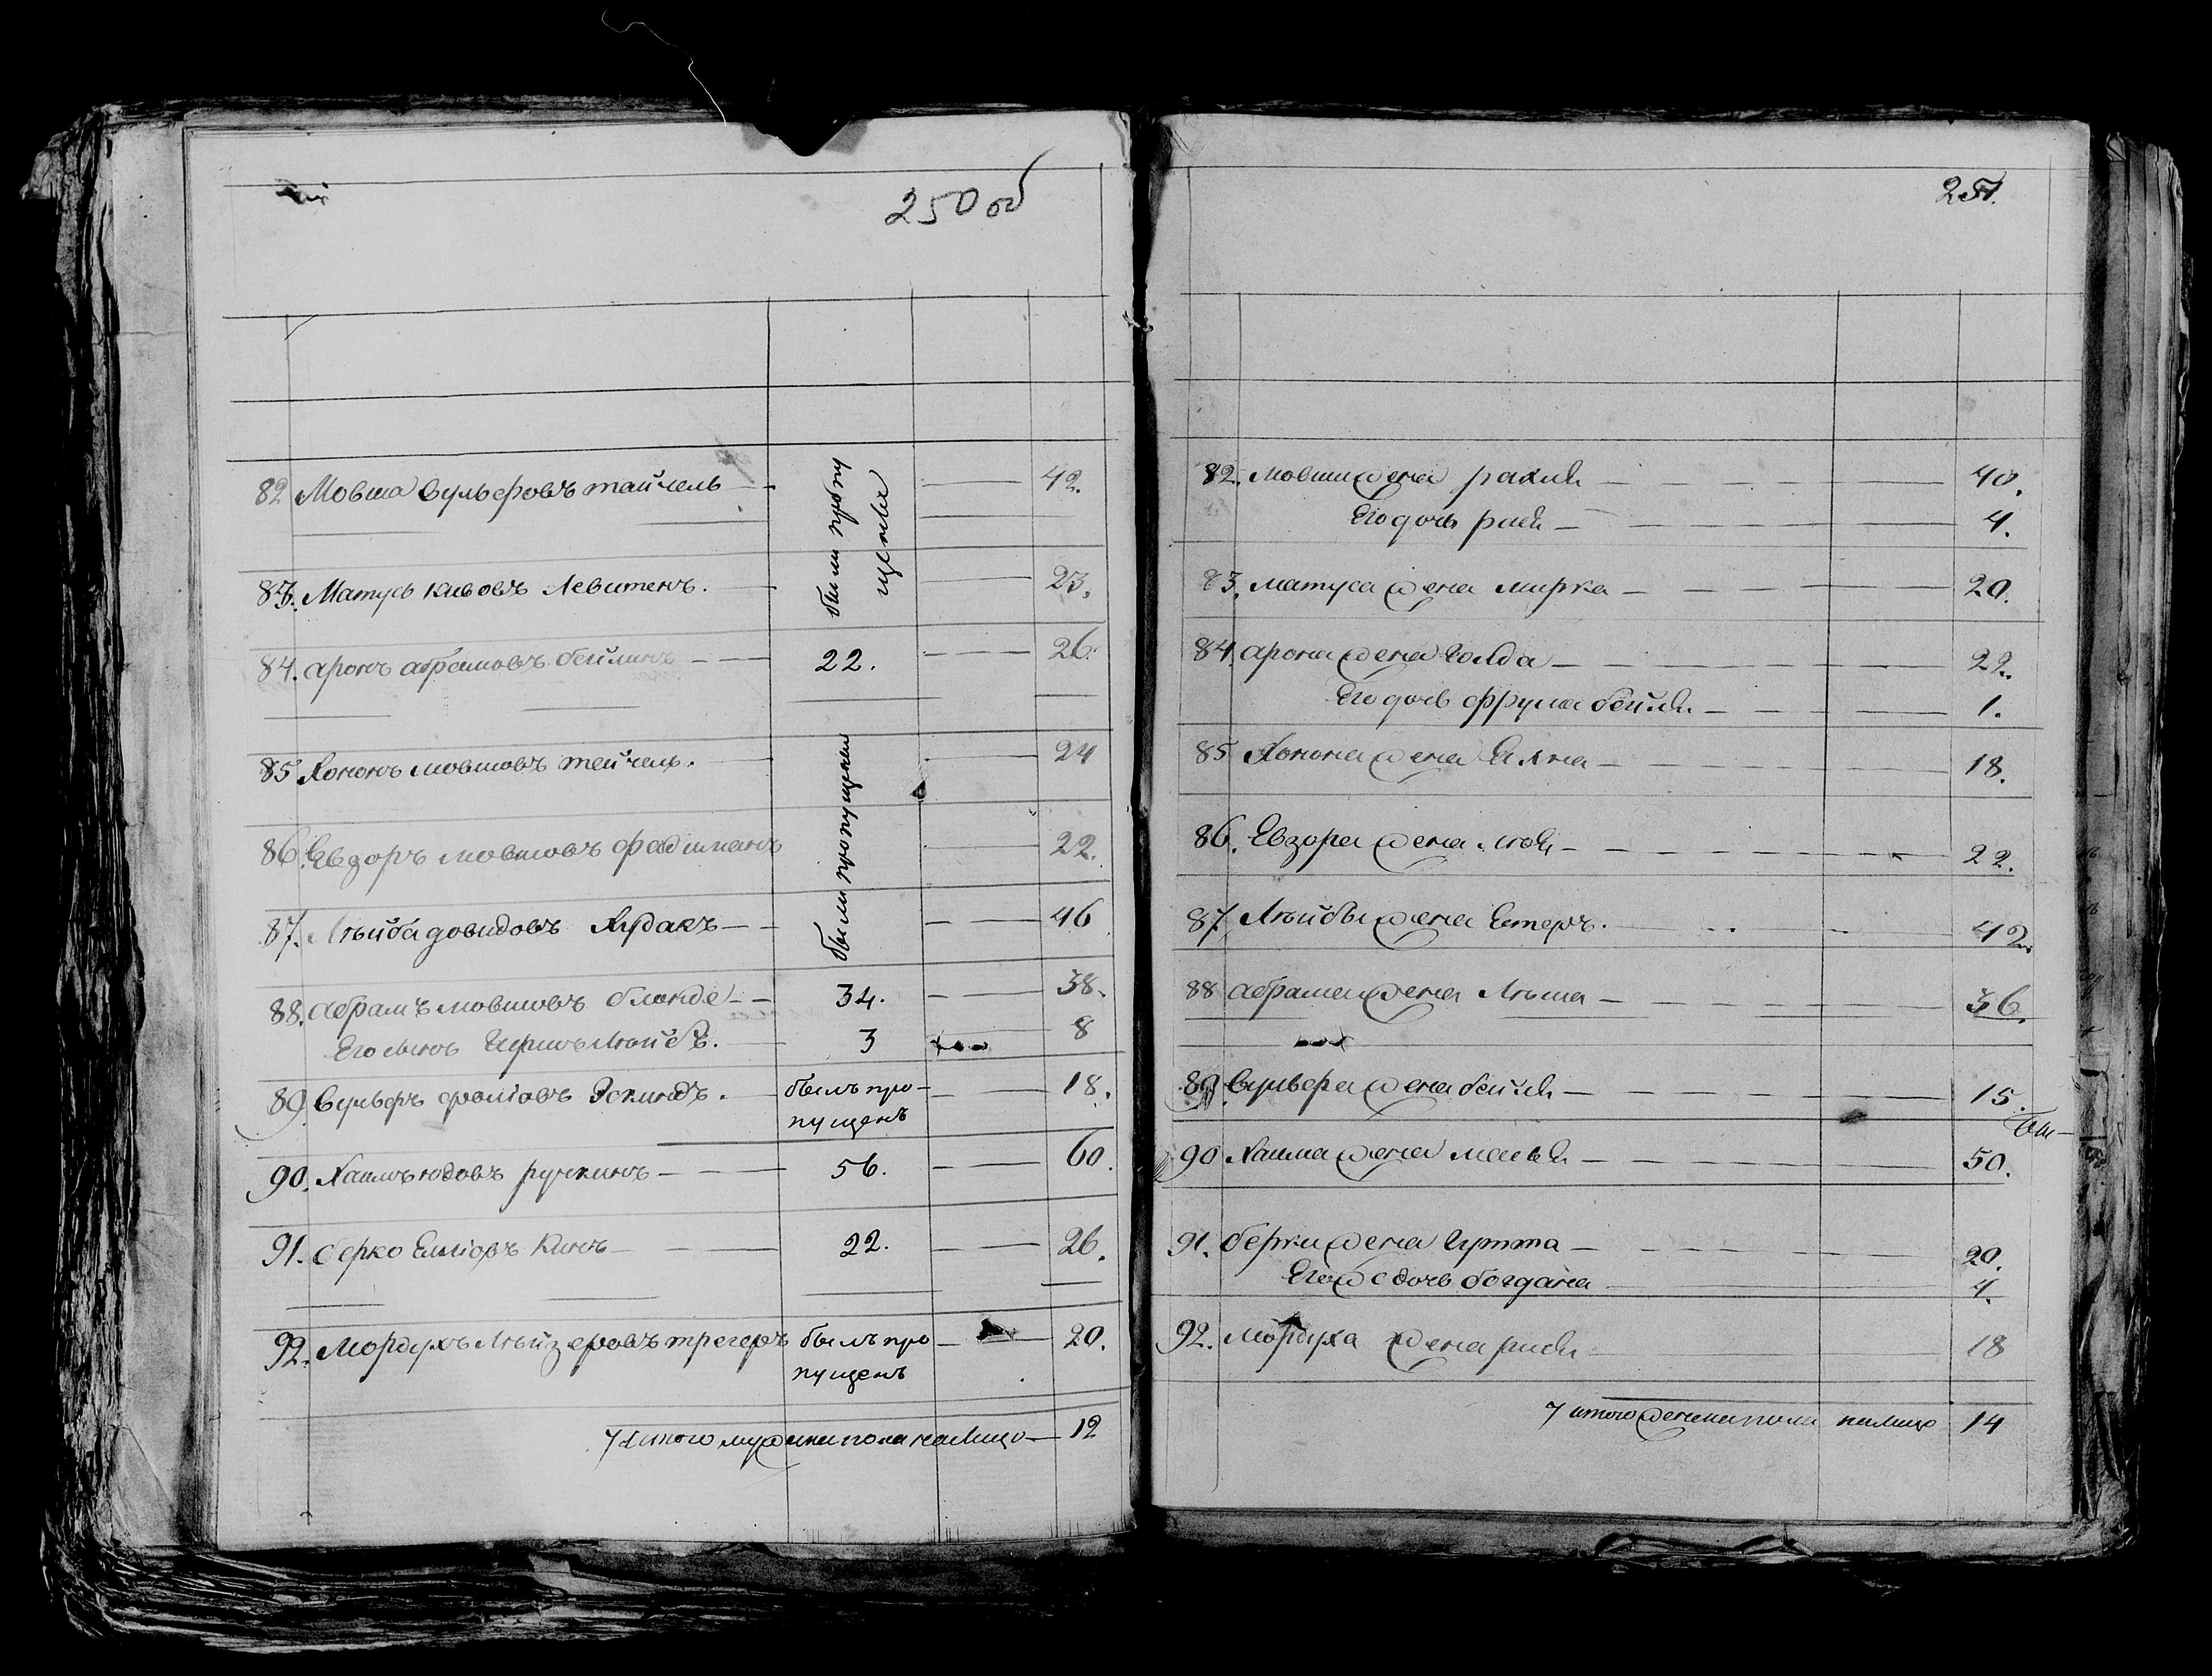 250 об
82 Мовша Вульфовъ тайчель — 42.
были пропу
щенные
83. Матусь Кивовъ Левитенъ. — 23.
84. Аронъ абрамовъ бейлинъ — 22. — 26.
85 Хононъ мовшовъ тейчель. — 24
были пропущены
86. Евзоръ мовшовъ фадиманъ 22.
87. Лѣйба довидовъ Худакъ — 46
88. абрамъ мовшовъ блюнде — 34. — 38.
Его сынъ Гиршъ Лѣйбъ. 3 8
89 Вульфъ 18.
былъ про-
пущенъ
90. Хаимъ юдовъ ручкинъ — 56. — 60.
91. берко Еліовъ Кинъ — 22. — 26.
92. Мордухъ Лѣйзеровъ трегеръ — 20.
былъ про
пущенъ
итого мужеска пола налицо — 12
251.
82. мовши жена рахля — 40.
Его дочь рася — 4.
83. матуса жена мирка — 20.
84 арона жена голда — 22.
Его дочь фрума бейля — 1.
85 Хонона жена Єихна — 18.
86. Евзора жена — 22.
87. Лѣйбы жена Естеръ. 42.
88 абрама жена 36.
89 Вульфа жена бейля — 15.
90 Хаима жена — 50.
91. берки жена Гутта — 20.
Его ж дочь богдана 4.
92. Мордуха жена рися 18
итого женска пола налицо 14